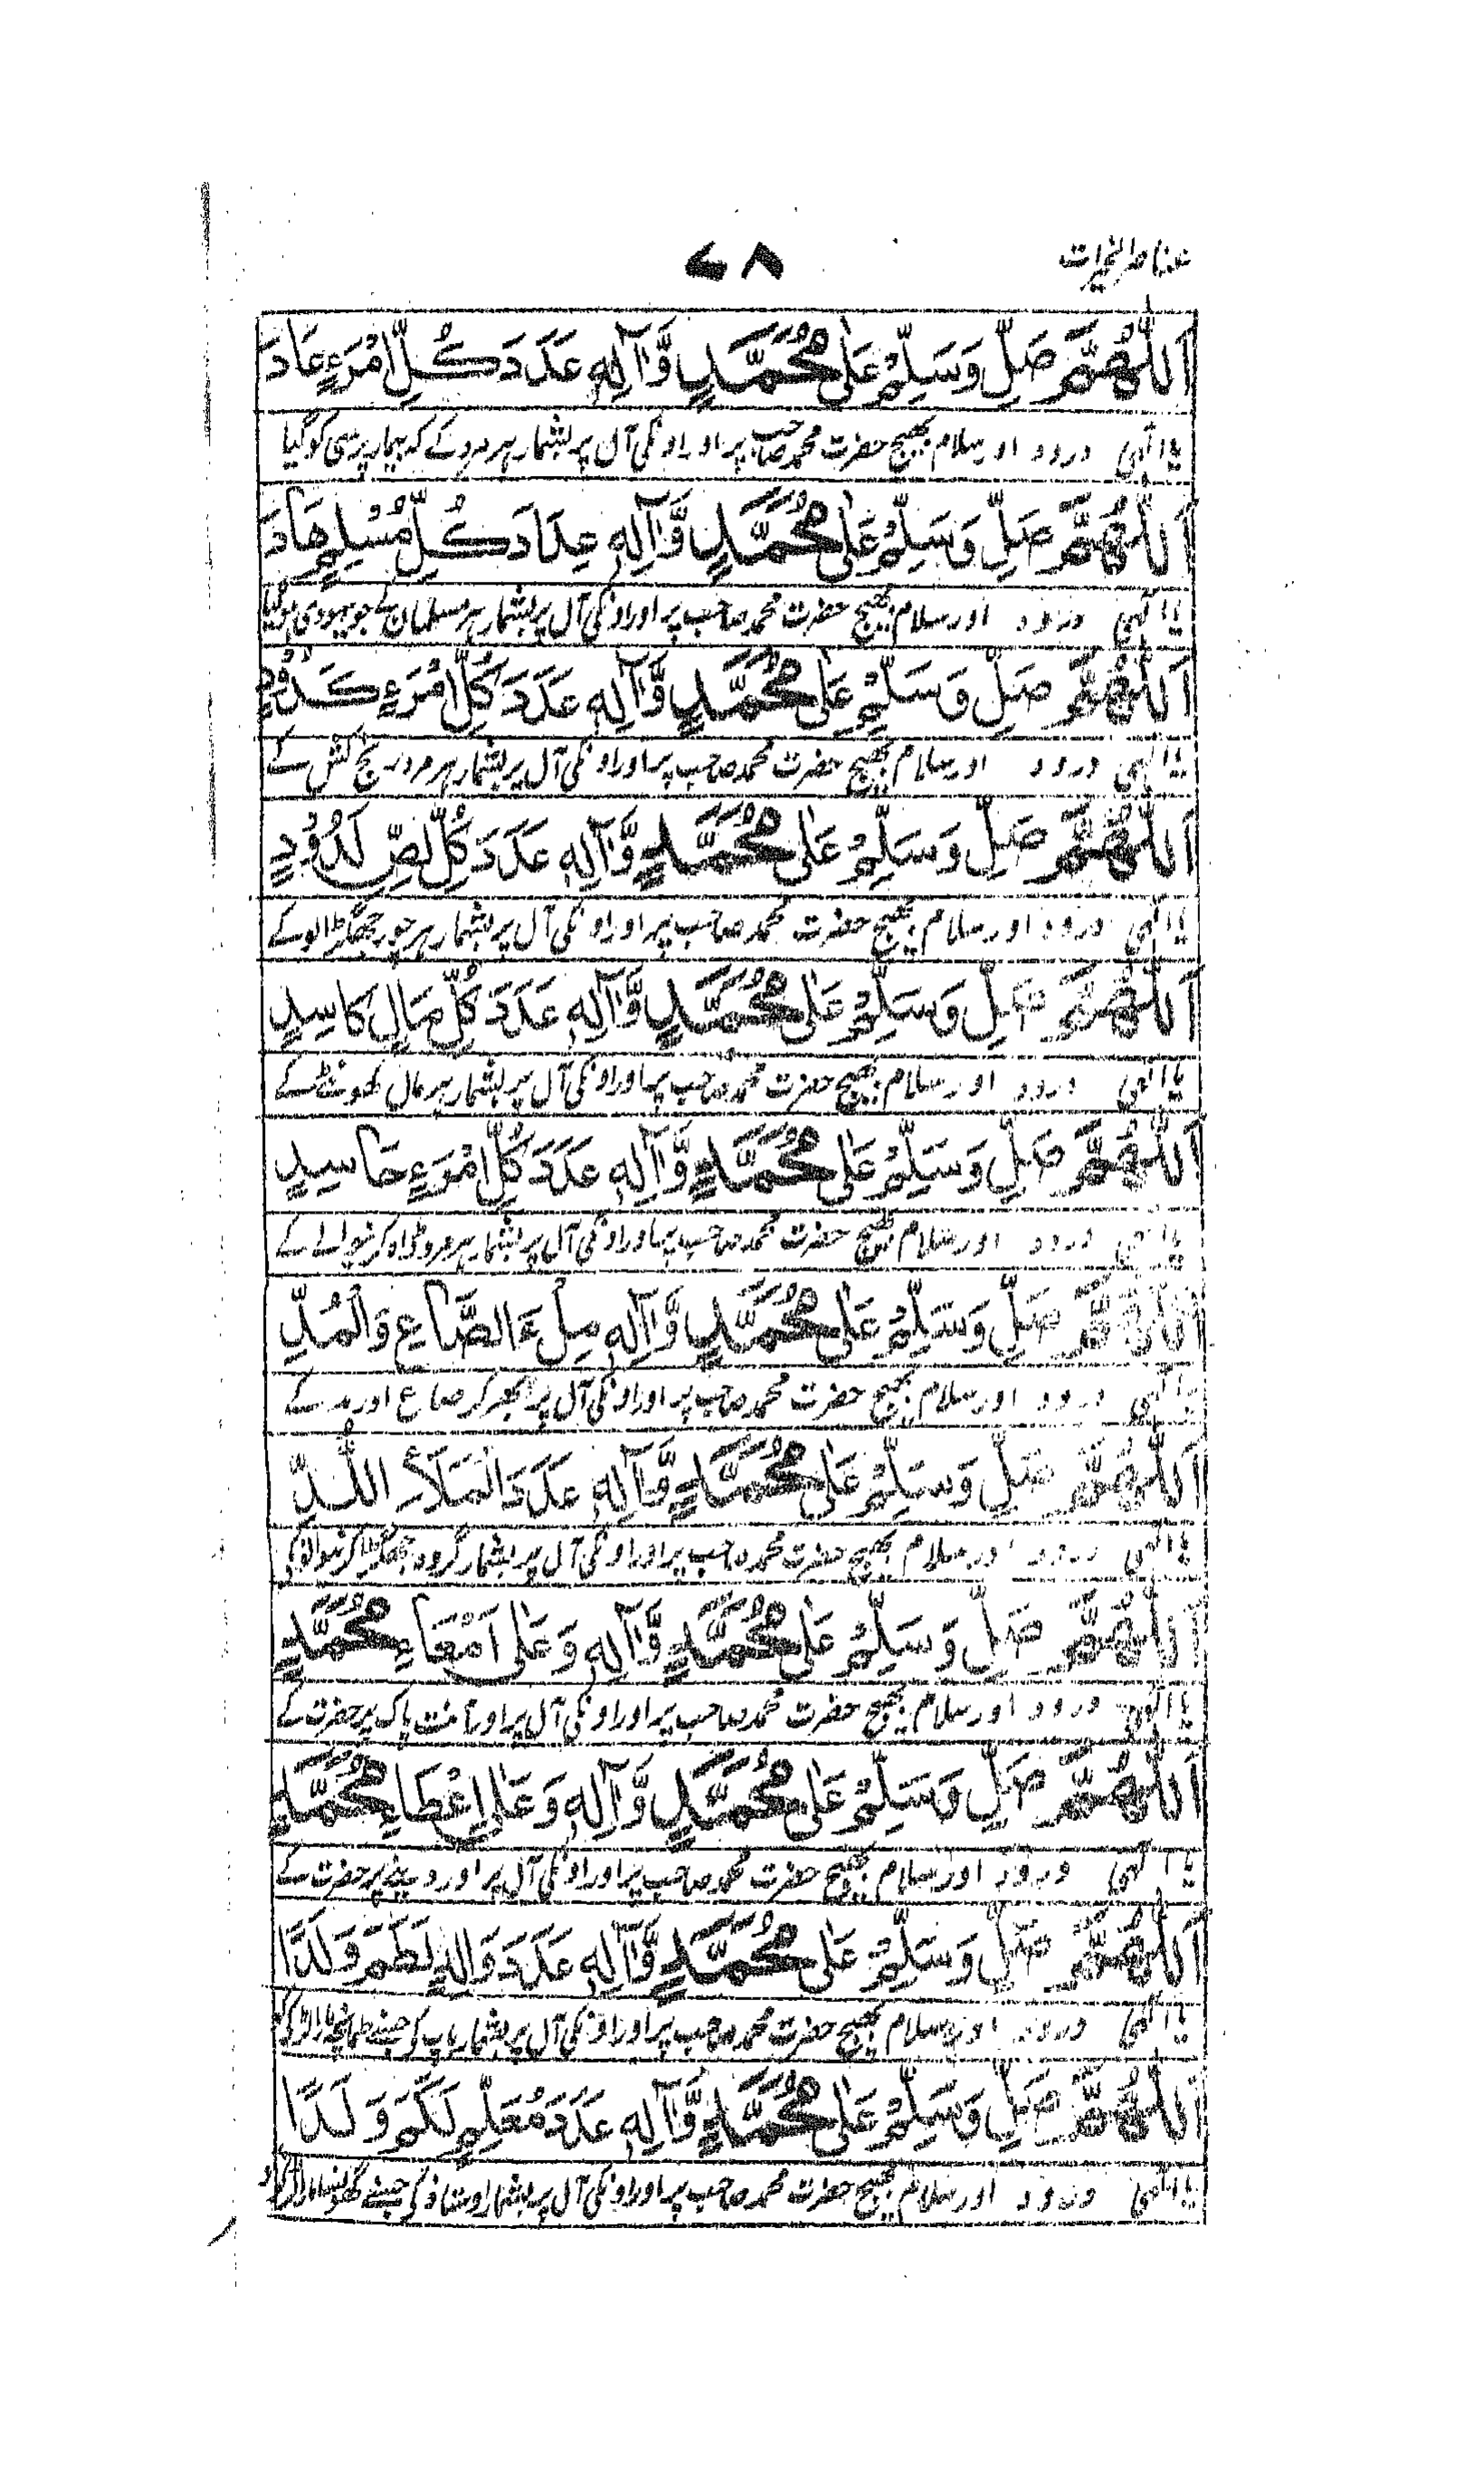 عناصر الخیرات
۷۸
اَللّٰهُمَّ صَلِّ وَسَلِّمْ عَلٰى مُحَمَّدٍ وَّاٰلِهٖ عَدَدَ كُلِّ امْرَءٍ عَادَ
یا الٰہی درود اور سلام بھیج حضرت محمد صاحب پر اور اونکی آل پر بشمار ہر مرد کے کہ بیمار پرسی کو گیا
اَللّٰهُمَّ صَلِّ وَسَلِّمْ عَلٰى مُحَمَّدٍ وَّاٰلِهٖ عِدَادَ كُلِّ مُسْلِمٍ هَادَ
یا الٰہی درود اور سلام بھیج حضرت محمد صاحب پر اور اونکی آل پر بشمار ہر مسلمان کے جو یہودی ہوگیا
اَللّٰهُمَّ صَلِّ وَسَلِّمْ عَلٰى مُحَمَّدٍ وَّاٰلِهٖ عَدَدَ كُلِّ امْرَءٍ كَدُوْدٍ
یا الٰہی درود اور سلام بھیج حضرت محمد صاحب پر اور اونکی آل پر بشمار ہر مرد رنج کش کے
اَللّٰهُمَّ صَلِّ وَسَلِّمْ عَلٰى مُحَمَّدٍ وَّاٰلِهٖ عَدَدَ كُلِّ لِصٍّ لَدُوْدٍ
یا الٰہی درود اور سلام بھیج حضرت محمد صاحب پر اور اونکی آل پر بشمار ہر چور جھگڑالو کے
اَللّٰهُمَّ صَلِّ وَسَلِّمْ عَلٰى مُحَمَّدٍ وَّاٰلِهٖ عَدَدَ كُلِّ مَالٍ كَاسِدٍ
یا الٰہی درود اور سلام بھیج حضرت محمد صاحب پر اور اونکی آل پر بشمار ہر مال کھونٹے کے
اَللّٰهُمَّ صَلِّ وَسَلِّمْ عَلٰى مُحَمَّدٍ وَّاٰلِهٖ عَدَدَ كُلِّ امْرَءٍ حَاسِدٍ
یا الٰہی درود اور سلام بھیج حضرت محمد صاحب پر اور اونکی آل پر بشمار ہر مرد ڈاہ کرنیوالے کے
اَللّٰهُمَّ صَلِّ وَسَلِّمْ عَلٰى مُحَمَّدٍ وَّاٰلِهٖ مِلْءَ الصَّاعِ وَالْمُدِّ
یا الٰہی درود اور سلام بھیج حضرت محمد صاحب پر اور اونکی آل پر بھر کر صاع اور مد کے
اَللّٰهُمَّ صَلِّ وَسَلِّمْ عَلٰى مُحَمَّدٍ وَّاٰلِهٖ عَدَدَ الْمَلَاءِ اللُّدِّ
یا الٰہی درود اور سلام بھیج حضرت محمد صاحب پر اور اونکی آل پر بشمار گروہ جھگڑا کرنیوالونکی
اَللّٰهُمَّ صَلِّ وَسَلِّمْ عَلٰى مُحَمَّدٍ وَّاٰلِهٖ وَعَلٰى اَمْعَاءِ مُحَمَّدٍ
یا الٰہی درود اور سلام بھیج حضرت محمد صاحب پر اور اونکی آل پر اور آنت پاک پر حضرت کے
اَللّٰهُمَّ صَلِّ وَسَلِّمْ عَلٰى مُحَمَّدٍ وَّاٰلِهٖ وَعَلٰى اِعْطَاءِ مُحَمَّدٍ
یا الٰہی درود اور سلام بھیج حضرت محمد صاحب پر اور اونکی آل پر اور دینے پر حضرت کے
اَللّٰهُمَّ صَلِّ وَسَلِّمْ عَلٰى مُحَمَّدٍ وَّاٰلِهٖ عَدَدَ وَالِدٍ لَطَمَ وَلَدًا
یا الٰہی درود اور سلام بھیج حضرت محمد صاحب پر اور اونکی آل پر بشمار باپ کی جسنے طمانچہ مارا لڑکی
اَللّٰهُمَّ صَلِّ وَسَلِّمْ عَلٰى مُحَمَّدٍ وَّاٰلِهٖ عَدَدَ مُعَلِّمٍ لَكَمَ وَلَدًا
یا الٰہی درود اور سلام بھیج حضرت محمد صاحب پر اور اونکی آل پر بشمار اوستاد کی جسنے گھونسا مارا